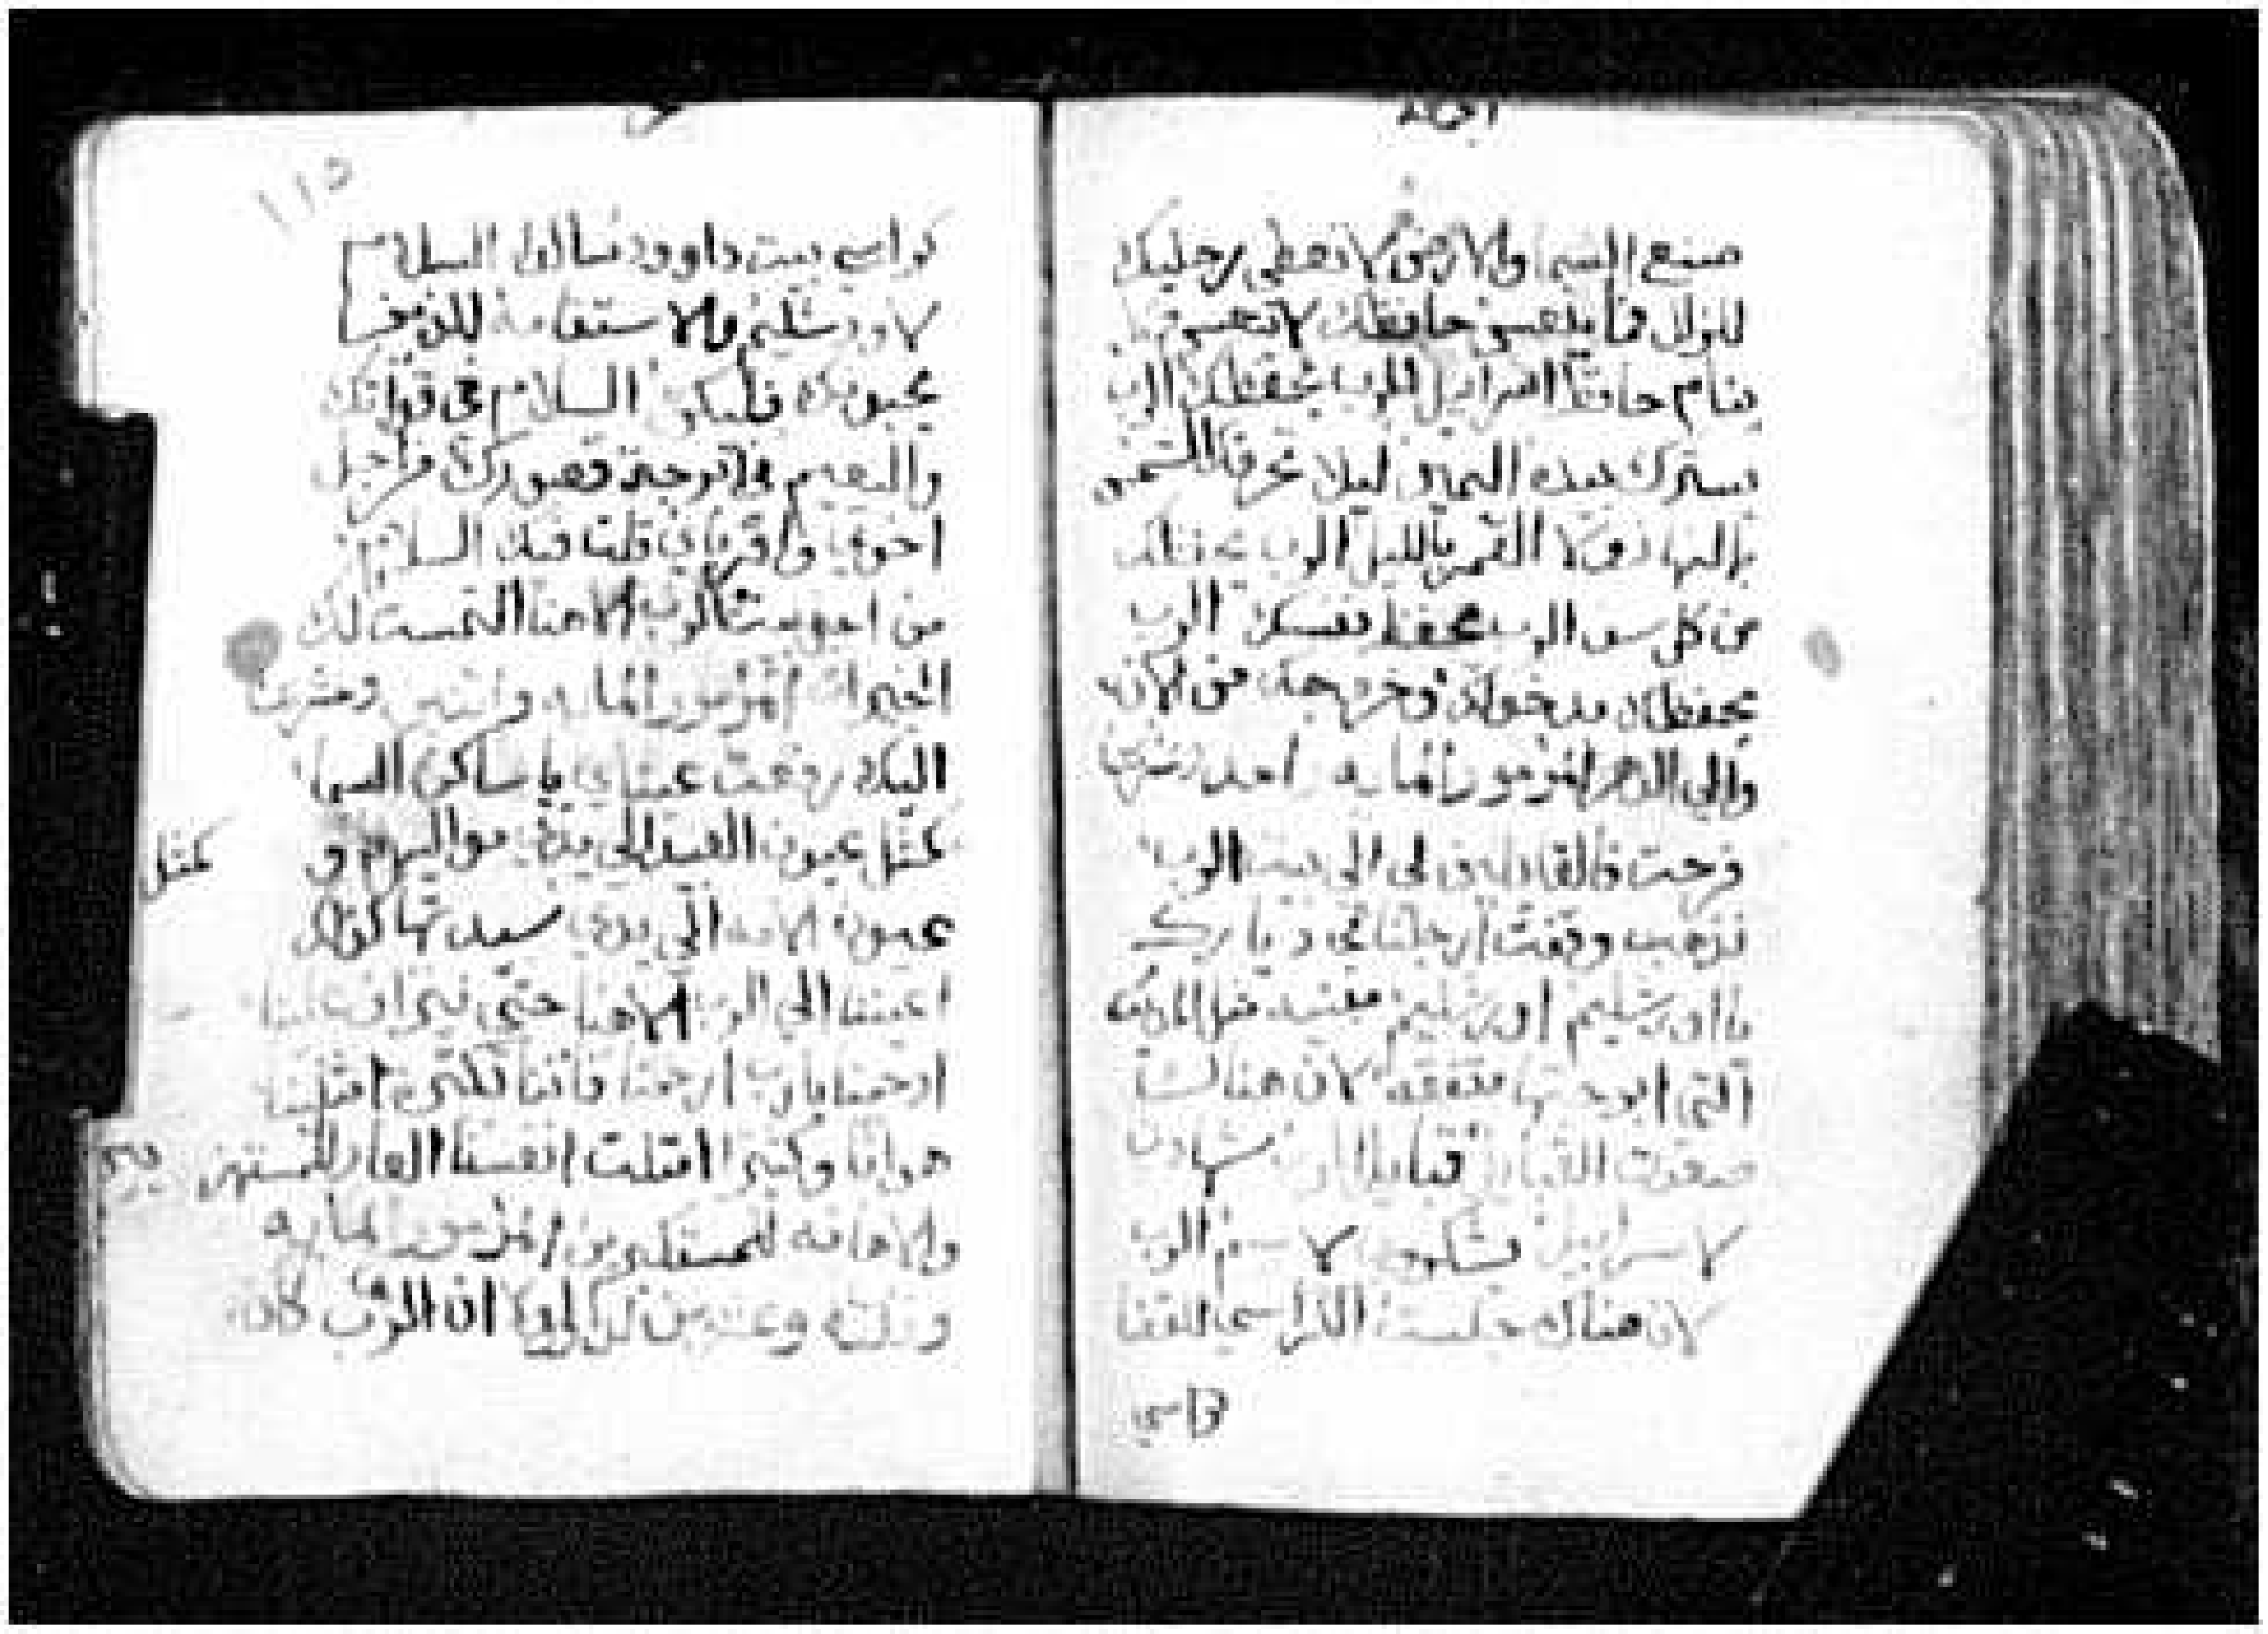 صنع السما والارض لا تعطي رجليك
للزلل فما ينعس حافظك لا تنعس
ينام حافظ اسراييل الرب يحفظك الرب
يسترك بيده اليمين ليلا تحرقك الشمس
بالنهار ولا القمر بالليل الرب يحفظك
من كل سو الرب يحفظ نفسك الرب
يحفظك مدخولك وخروجك من الان
والي الدهر المزمور المايه واحد وعشرين
فرحت بالقايلين لي الي بيت الرب
نذهب وقفت ارجلنا في ديارك
يا اورشليم اورشليم مبنيه مثل المدينه
التي ابوجتها متفقه لان هناك
صعدت القبايل قبايل الرب شهاده
لاسراييل يشكرون لاسم الرب
لان هناك جلست الكراسي للقضا
كراسي
115
كراسي بيت داوود نسال السلام
لاورشليم والاستقامة للذين
يحبونك فليكون السلام في قواتك
والنعيم في ابرجة قصورك من اجل
اخوتي واقرباي قلت فيك السلام
من اجل بيت الرب الاهنا التمست لك
الخيرات المزمور المايه واثنين وعشرين
اليك رفعت عيناي يا ساكن السما
كمثل عيون العبيد الي يدي مواليهم و
كمثل
عيون الامه الي يدي سيدتها كذلك
اعيننا الي الرب الاهنا حتي يتراف علينا
ارحمنا يا رب ارحمنا فاننا كثيرا امتلينا
هوانا وكثيرا امتلت انفسنا العار للمستهز
يين
والاهانه للمستكبرين المزمور المايه
وثلثه وعشرين لولا ان الرب كان